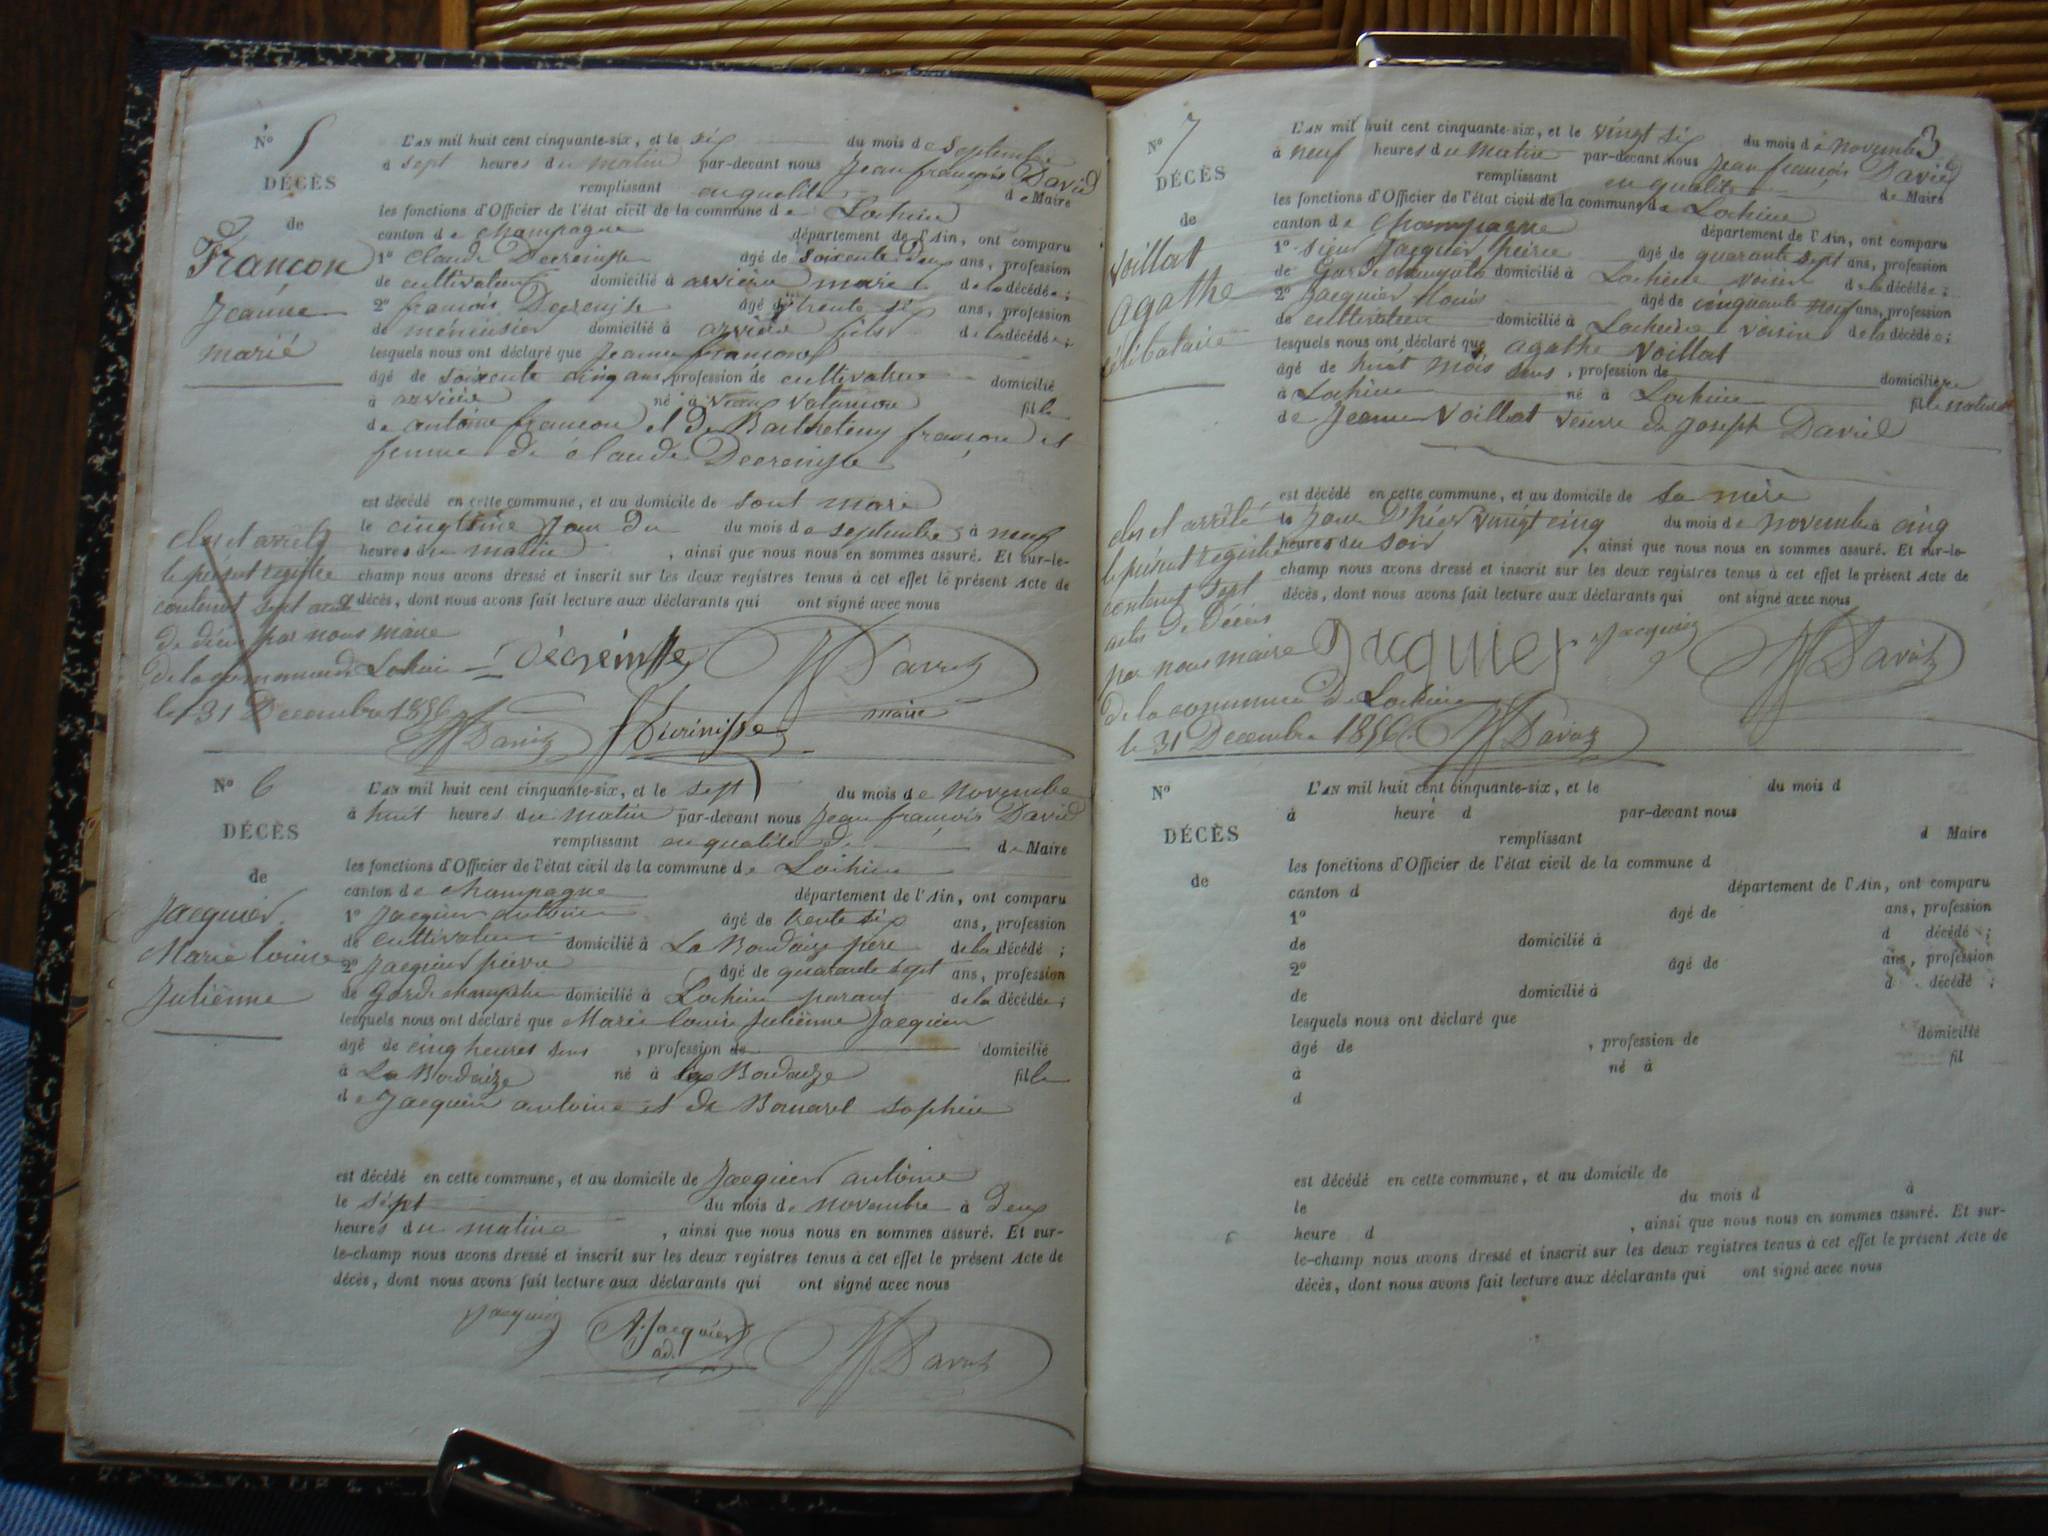 No 5
DÉCÈS
de
Françon
Jeanne
marié
L'AN mil huit cent cinquante-six, et le six du mois de septembre
à sept heures du matin par-devant nous Jean françois David
remplissant en qualité de Maire
les fonctions d'Officier de l'état civil de la commune de Lochieu
canton de champagne département de l'Ain, ont comparu
1o claude Decreinsse âgé de soixente deux ans, profession
de cultivateur domicilié à arvière mari de la décédée;
2o françois Decreinsse âgé de trente six ans, profession
de menuisier domicilié à arvière fils de la décédée;
lesquels nous ont déclaré que Jeanne françon
âgé de soixente cinq ans, profession de cultivatrice domicilié
à arvière né à vieux valançon fille
de antoine françon et de Barthelemy françon et
femme de claude Decreinsse
est décédé en cette commune, et au domicile de sont mari
le cinqtième jour du du mois de septembre à neuf
heures du matin , ainsi que nous nous en sommes assuré. Et sur-le-
champ nous avons dressé et inscrit sur les deux registres tenus à cet effet le présent Acte de
décès, dont nous avons fait lecture aux déclarants qui ont signé avec nous
clos et arrêté
le présent registre
contenant sept actes
de décès par nous maire
de la commune de Lochieu
le 31 Decembre 1856
Décreinsse David
maire
David Decrénisse
No 6
DÉCÈS
de
Jacquier
Marie louise
Julienne
L'AN mil huit cent cinquante-six, et le sept du mois de novembre
à huit heures du matin par-devant nous Jean françois David
remplissant en qualité de de Maire
les fonctions d'Officier de l'état civil de la commune de Lochieu
canton de champagne département de l'Ain, ont comparu
1o Jacquier antoine âgé de trente six ans, profession
de cultivateur domicilié à La Bordaize père de la décédé;
2o Jacquier pierre âgé de quarante sept ans, profession
de garde champêtre domicilié à Lochieu parant de la décédée;
lesquels nous ont déclaré que Marie louise Julienne Jacquier
âgé de cinq heures sens , profession de domicilié
à La Bordaize né à La Bordaize fille
de Jacquier antoine et de Bornarel sophie
est décédé en cette commune, et au domicile de Jacquier antoine
le sept du mois de novembre à deux
heures du matin , ainsi que nous nous en sommes assuré. Et sur-
le-champ nous avons dressé et inscrit sur les deux registres tenus à cet effet le présent Acte de
décès, dont nous avons fait lecture aux déclarants qui ont signé avec nous
Jacquier A. Jacquier David
ad.
3
No 7
DÉCÈS
de
Voillat
agathe
célibataire
L'AN mil huit cent cinquante-six, et le vingt six du mois de novembre
à neuf heures du matin par-devant nous Jean françois David
remplissant en qualité de Maire
les fonctions d'Officier de l'état civil de la commune de Lochieu
canton de champagne département de l'Ain, ont comparu
1o sieur Jacquier pierre âgé de quarante sept ans, profession
de garde champêtre domicilié à Lochieu voisin de la décédée;
2o Jacquier louis âgé de cinquante neuf ans, profession
de cultivateur domicilié à Lochieu voisin de la décédée;
lesquels nous ont déclaré que agathe Voillat
âgé de huit mois sens , profession de domiciliée
à Lochieu né à Lochieu fille naturelle
de Jeanne Voillat veuve de Joseph David
est décédé en cette commune, et au domicile de sa mère
le jour d'hier vingt cinq du mois de novembre à cinq
heures du soir , ainsi que nous nous en sommes assuré. Et sur-le-
champ nous avons dressé et inscrit sur les deux registres tenus à cet effet le présent Acte de
décès, dont nous avons fait lecture aux déclarants qui ont signé avec nous
clos et arrêté
le présent registre
contenant sept
actes de Décès
par nous maire
de la commune de Lochieu
le 31 Decembre 1856
Jacquier Jacquier David
David
No
DÉCÈS
de
L'AN mil huit cent cinquante-six, et le du mois d
à heure d par-devant nous
remplissant d Maire
les fonctions d'Officier de l'état civil de la commune d
canton d département de l'Ain, ont comparu
1o âgé de ans, profession
de domicilié à d décédé;
2o âgé de ans, profession
de domicilié à d décédé;
lesquels nous ont déclaré que
âgé de , profession de domicilié
à né à fil
d
est décédé en cette commune, et au domicile de
le du mois d à
heure d , ainsi que nous nous en sommes assuré. Et sur-
le-champ nous avons dressé et inscrit sur les deux registres tenus à cet effet le présent Acte de
décès, dont nous avons fait lecture aux déclarants qui ont signé avec nous